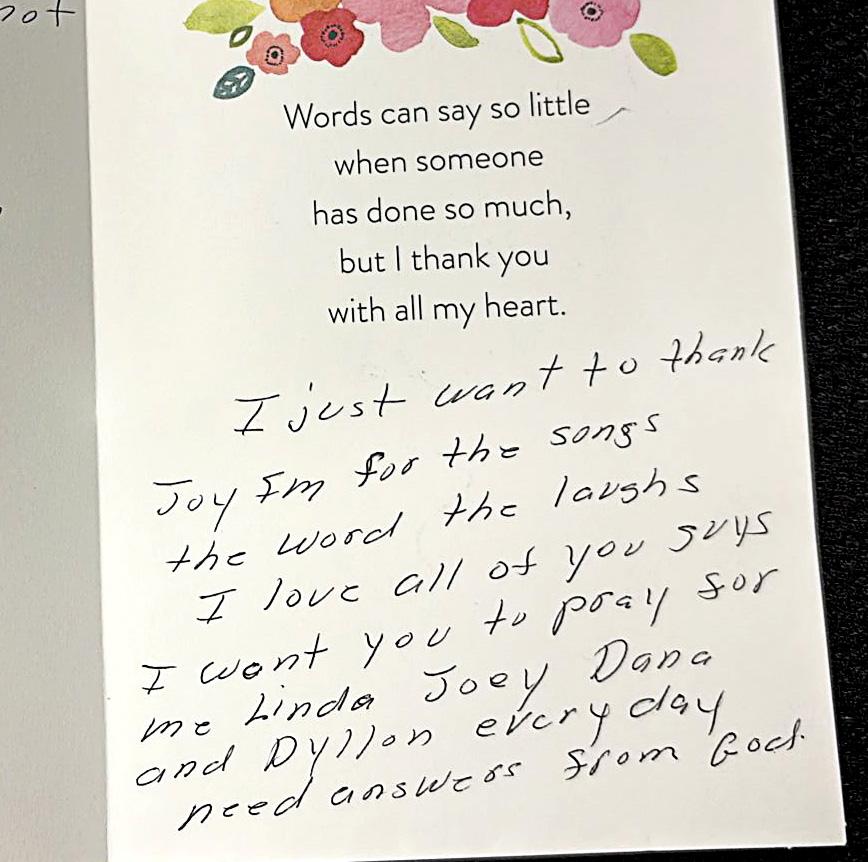 not
Words can say so little
when someone
has done so much,
but I thank you
with all my heart.
I just want to thank
Joy Fm for the songs
the word the laughs
I love all of you guys
I want you to pray for
me Linda Joey Dana
and Dyllon every day
need answers from God.